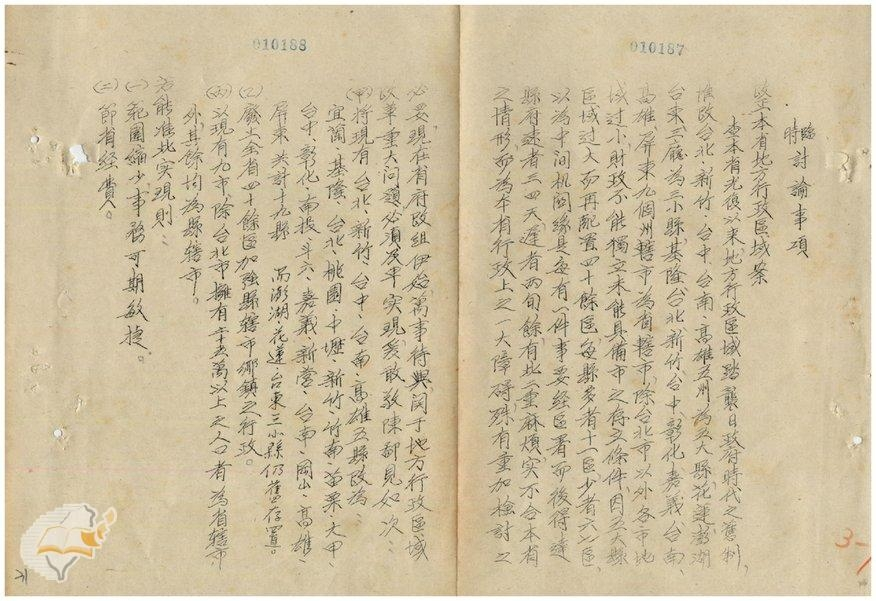 010187
臨時討論事項
整理本省地方行政區域案
查本省光復以來地方行政區域踏襲日政府時代之舊制,
惟改台北、新竹、台中、台南、高雄五州為五大縣,花蓮澎湖
台東三廳為三小縣,基隆、台北、新竹、台中、彰化、嘉義、台南、
高雄屏東九個州轄市為省轄市,除台北市以外各市地
域过小,財政不能獨立,未能具備市之存立條件,因五大縣
區域过大而再配置四十餘區,每縣多者十一區少者六七區,
以為中间机関,緣是每有一件事要经區署而後得達
縣府,速者三四天,遲者兩旬餘,有此二重麻煩,实不合本省
之情形,而為本省行政上之一大障碍,殊有重加檢討之
010188
必要,現在省府改組伊始,萬事待興,関于地方行政區域
改革重大问題必須及早实現,爰敢敬陳鄙見如次:
(甲)將現有台北、新竹、台中、台南、高雄五縣改為:
宜蘭、基隆、台北、桃園、中壢、新竹、竹南、苗栗、大甲、
台中、彰化、南投、斗六、嘉義、新營、台南、岡山、高雄、
屏東共計十九縣 而澎湖、花蓮、台東三小縣仍舊存置。
(乙)廢止全省四十餘區加強縣轄市鄉鎮之行政。
(丙)以現有九市,除台北市擁有二十五萬以上之人口者為省轄市,
外其餘均為縣轄市。
若能准此实現則:
(一)範圍縮少,事務可期敏捷。
(二)節省经費。